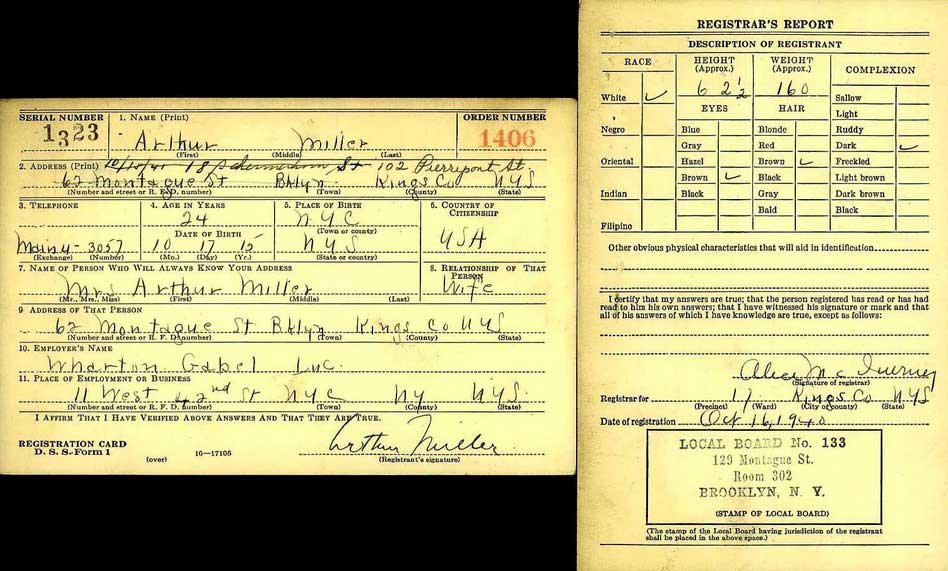 SERIAL NUMBER
1323
1. NAME (Print)
ORDER NUMBER
1406
Arthur Miller
(First) (Middle) (Last)
2. ADDRESS (Print) 18 Schermerhorn St 102 Pierrepont St.
62 Montague St Bklyn Kings Co NYS
(Number and street or R. F. D. number) (Town) (County) (State)
3. TELEPHONE
4. AGE IN YEARS
5. PLACE OF BIRTH
6. COUNTRY OF CITIZENSHIP
24
NYC
(Town or county)
USA
DATE OF BIRTH
Main 4-3057
10 17 15
NYS
(Exchange) (Number)
(Mo.) (Day) (Yr.)
(State or country)
7. NAME OF PERSON WHO WILL ALWAYS KNOW YOUR ADDRESS
8. RELATIONSHIP OF THAT PERSON
Mrs Arthur Miller
Wife
(Mr., Mrs., Miss) (First) (Middle) (Last)
9 ADDRESS OF THAT PERSON
62 Montague St Bklyn Kings Co NYS
(Number and street or R. F. D. number) (Town) (County) (State)
10. EMPLOYER'S NAME
Wharton Gabel Inc.
11. PLACE OF EMPLOYMENT OR BUSINESS
11 West 42nd St NYC NY NYS.
(Number and street or R. F. D. number) (Town) (County) (State)
I AFFIRM THAT I HAVE VERIFIED ABOVE ANSWERS AND THAT THEY ARE TRUE.
REGISTRATION CARD
D. S. S. Form 1
(over)
16—17105
Arthur Miller
(Registrant's signature)
REGISTRAR'S REPORT
DESCRIPTION OF REGISTRANT
RACE
HEIGHT (Approx.)
WEIGHT (Approx.)
COMPLEXION
White ✓
6 2½
160
Sallow
EYES
HAIR
Light
Negro
Blue
Blonde
Ruddy
Gray
Red
Dark ✓
Oriental
Hazel
Brown ✓
Freckled
Brown ✓
Black
Light brown
Indian
Black
Gray
Dark brown
Bald
Black
Filipino
Other obvious physical characteristics that will aid in identification
I certify that my answers are true; that the person registered has read or has had
read to him his own answers; that I have witnessed his signature or mark and that
all of his answers of which I have knowledge are true, except as follows:
Alice Mc Inerney
(Signature of registrar)
Registrar for 17 Kings Co NYS
(Precinct) (Ward) (City or county) (State)
Date of registration Oct 16, 1940
LOCAL BOARD No. 133
129 Montague St.
Room 302
BROOKLYN, N. Y.
(STAMP OF LOCAL BOARD)
(The stamp of the Local Board having jurisdiction of the registrant
shall be placed in the above space.)